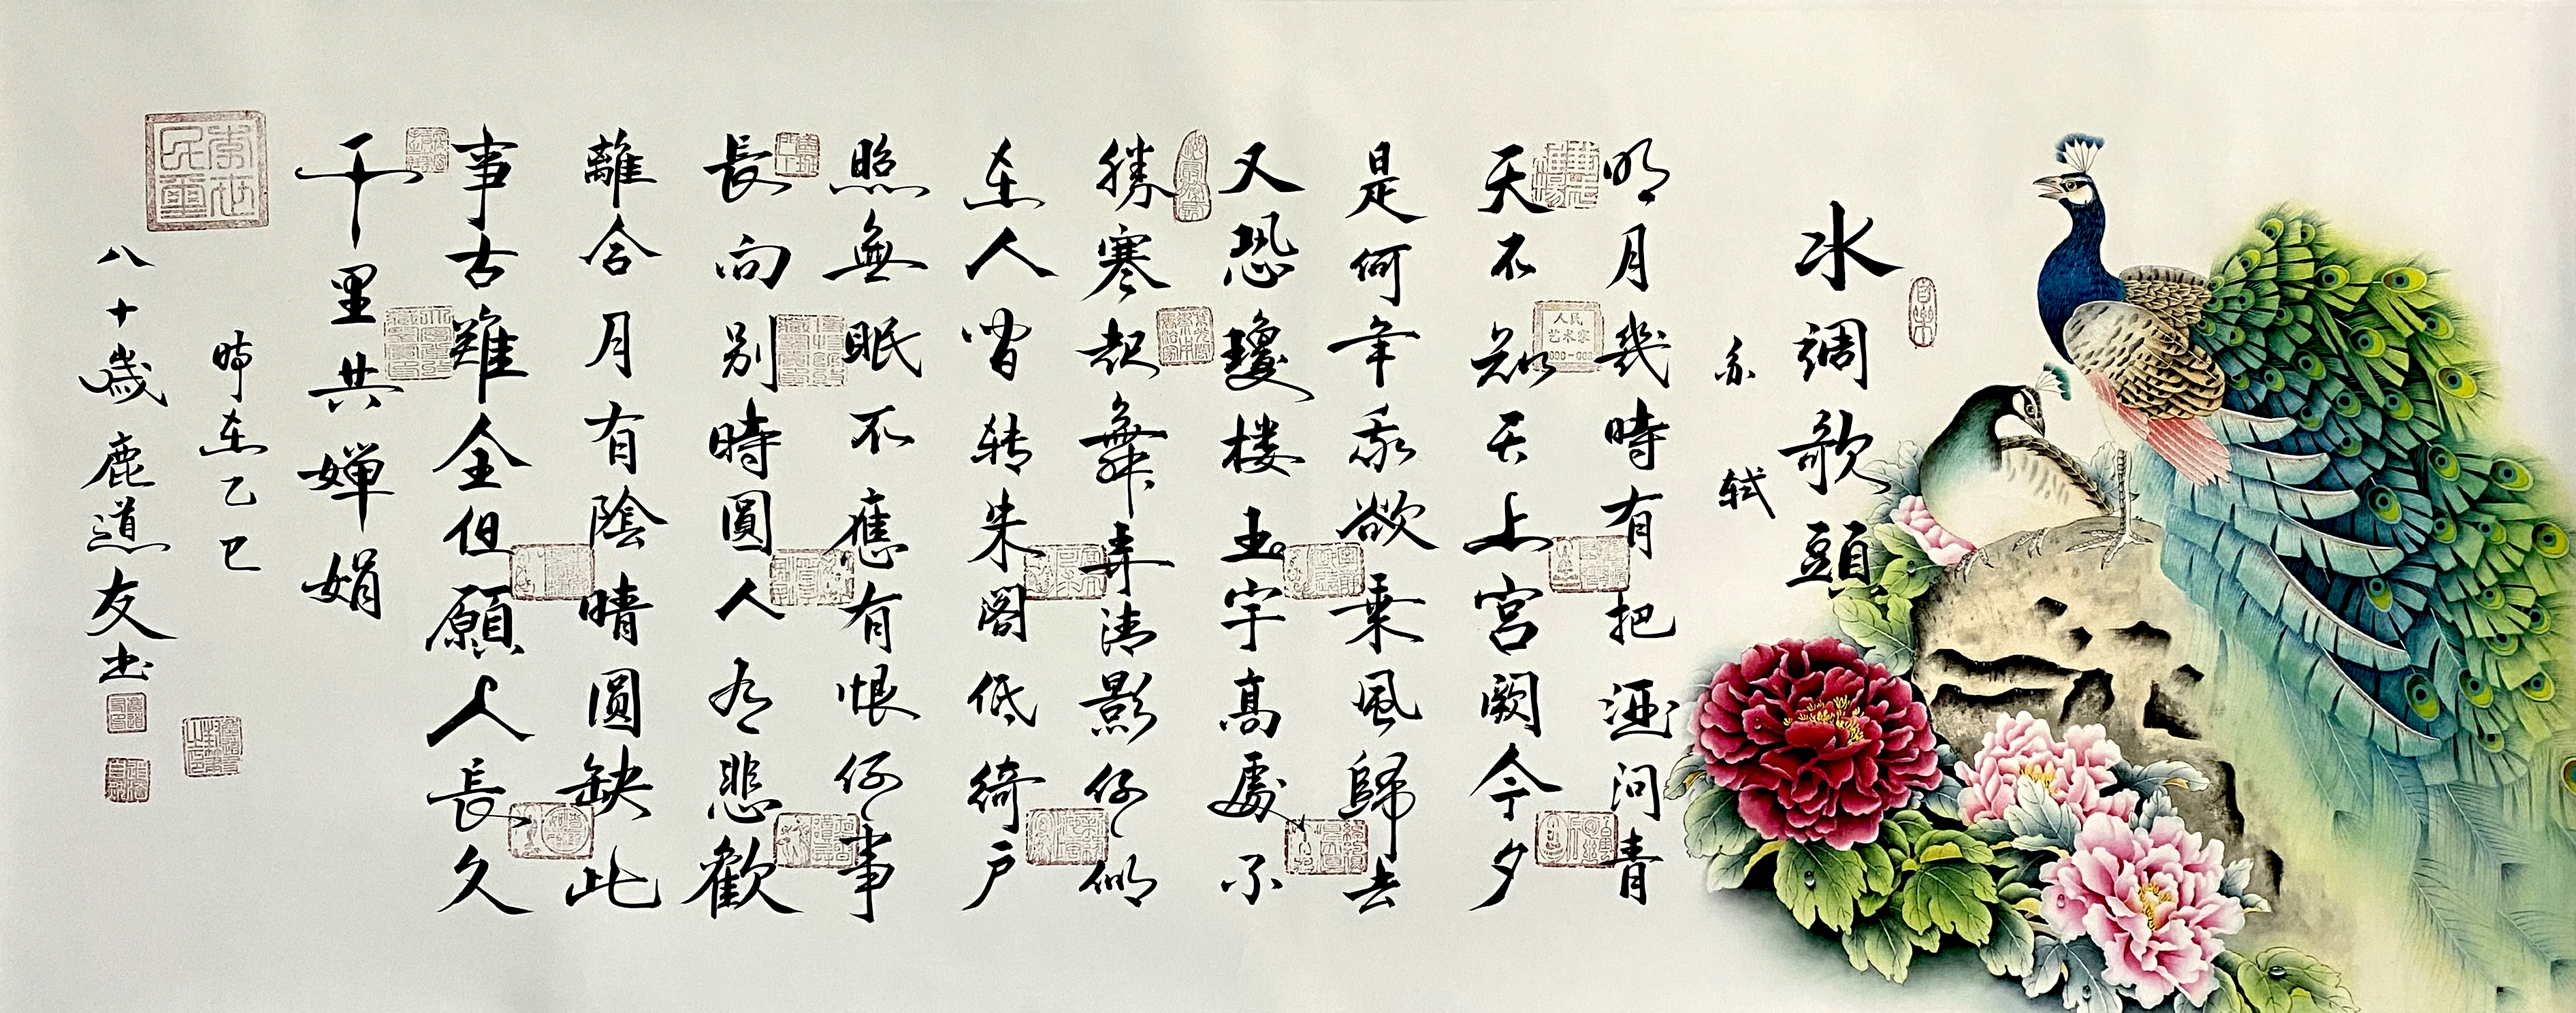 水調歌頭
苏轼
明月幾時有把酒问青
天不知天上宮闕今夕
是何年我欲乘風歸去
又恐瓊楼玉宇高處不
勝寒起舞弄清影何似
在人间转朱阁低綺户
照無眠不應有恨何事
長向别時圓人有悲歡
離合月有陰晴圓缺此
事古難全但願人長久
千里共嬋娟
時在乙巳
八十歲鹿道友书
人民
艺术家